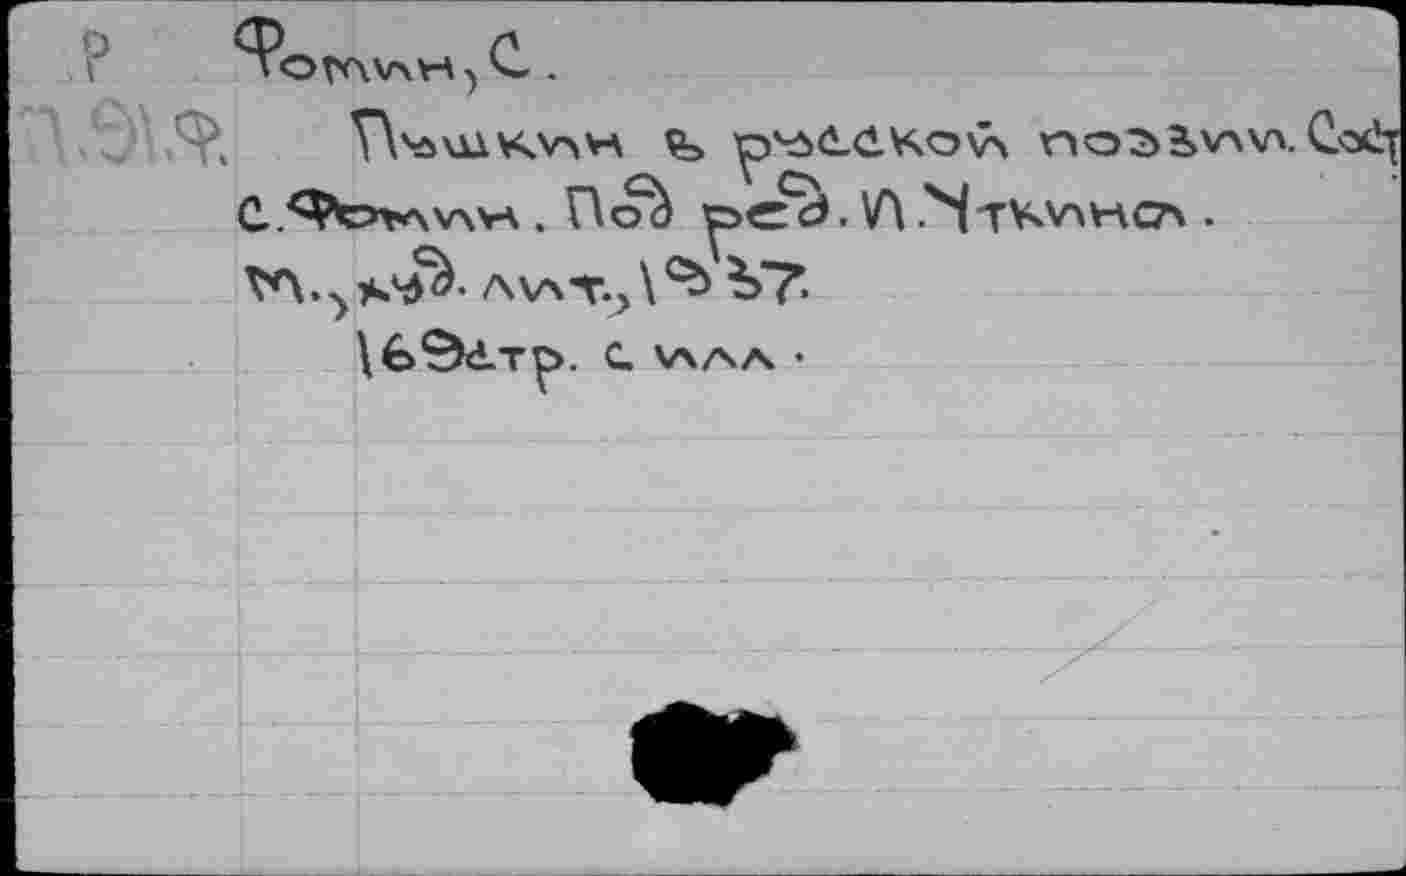 Р Фомин, С.
П.91.Ф. Пушкин в русской поэзии. Сост
С.Фомин. Под ред. И.Уткина.
М., худ. лит., 1937.
169стр. с илл.